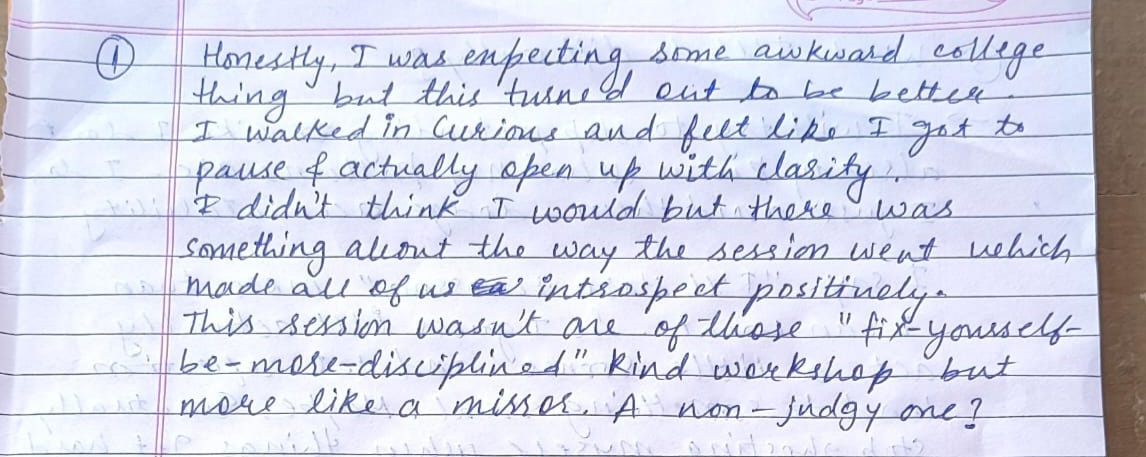 ① Honestly, I was expecting some awkward college
thing but this turned out to be better.
I walked in curious and felt like I got to
pause & actually open up with clarity.
I didn't think I would but there was
something about the way the session went which
made all of us introspect positively.
This session wasn't one of those "fix-yourself-
be-more-disciplined" kind workshop but
more like a mirror. A non-judgy one?